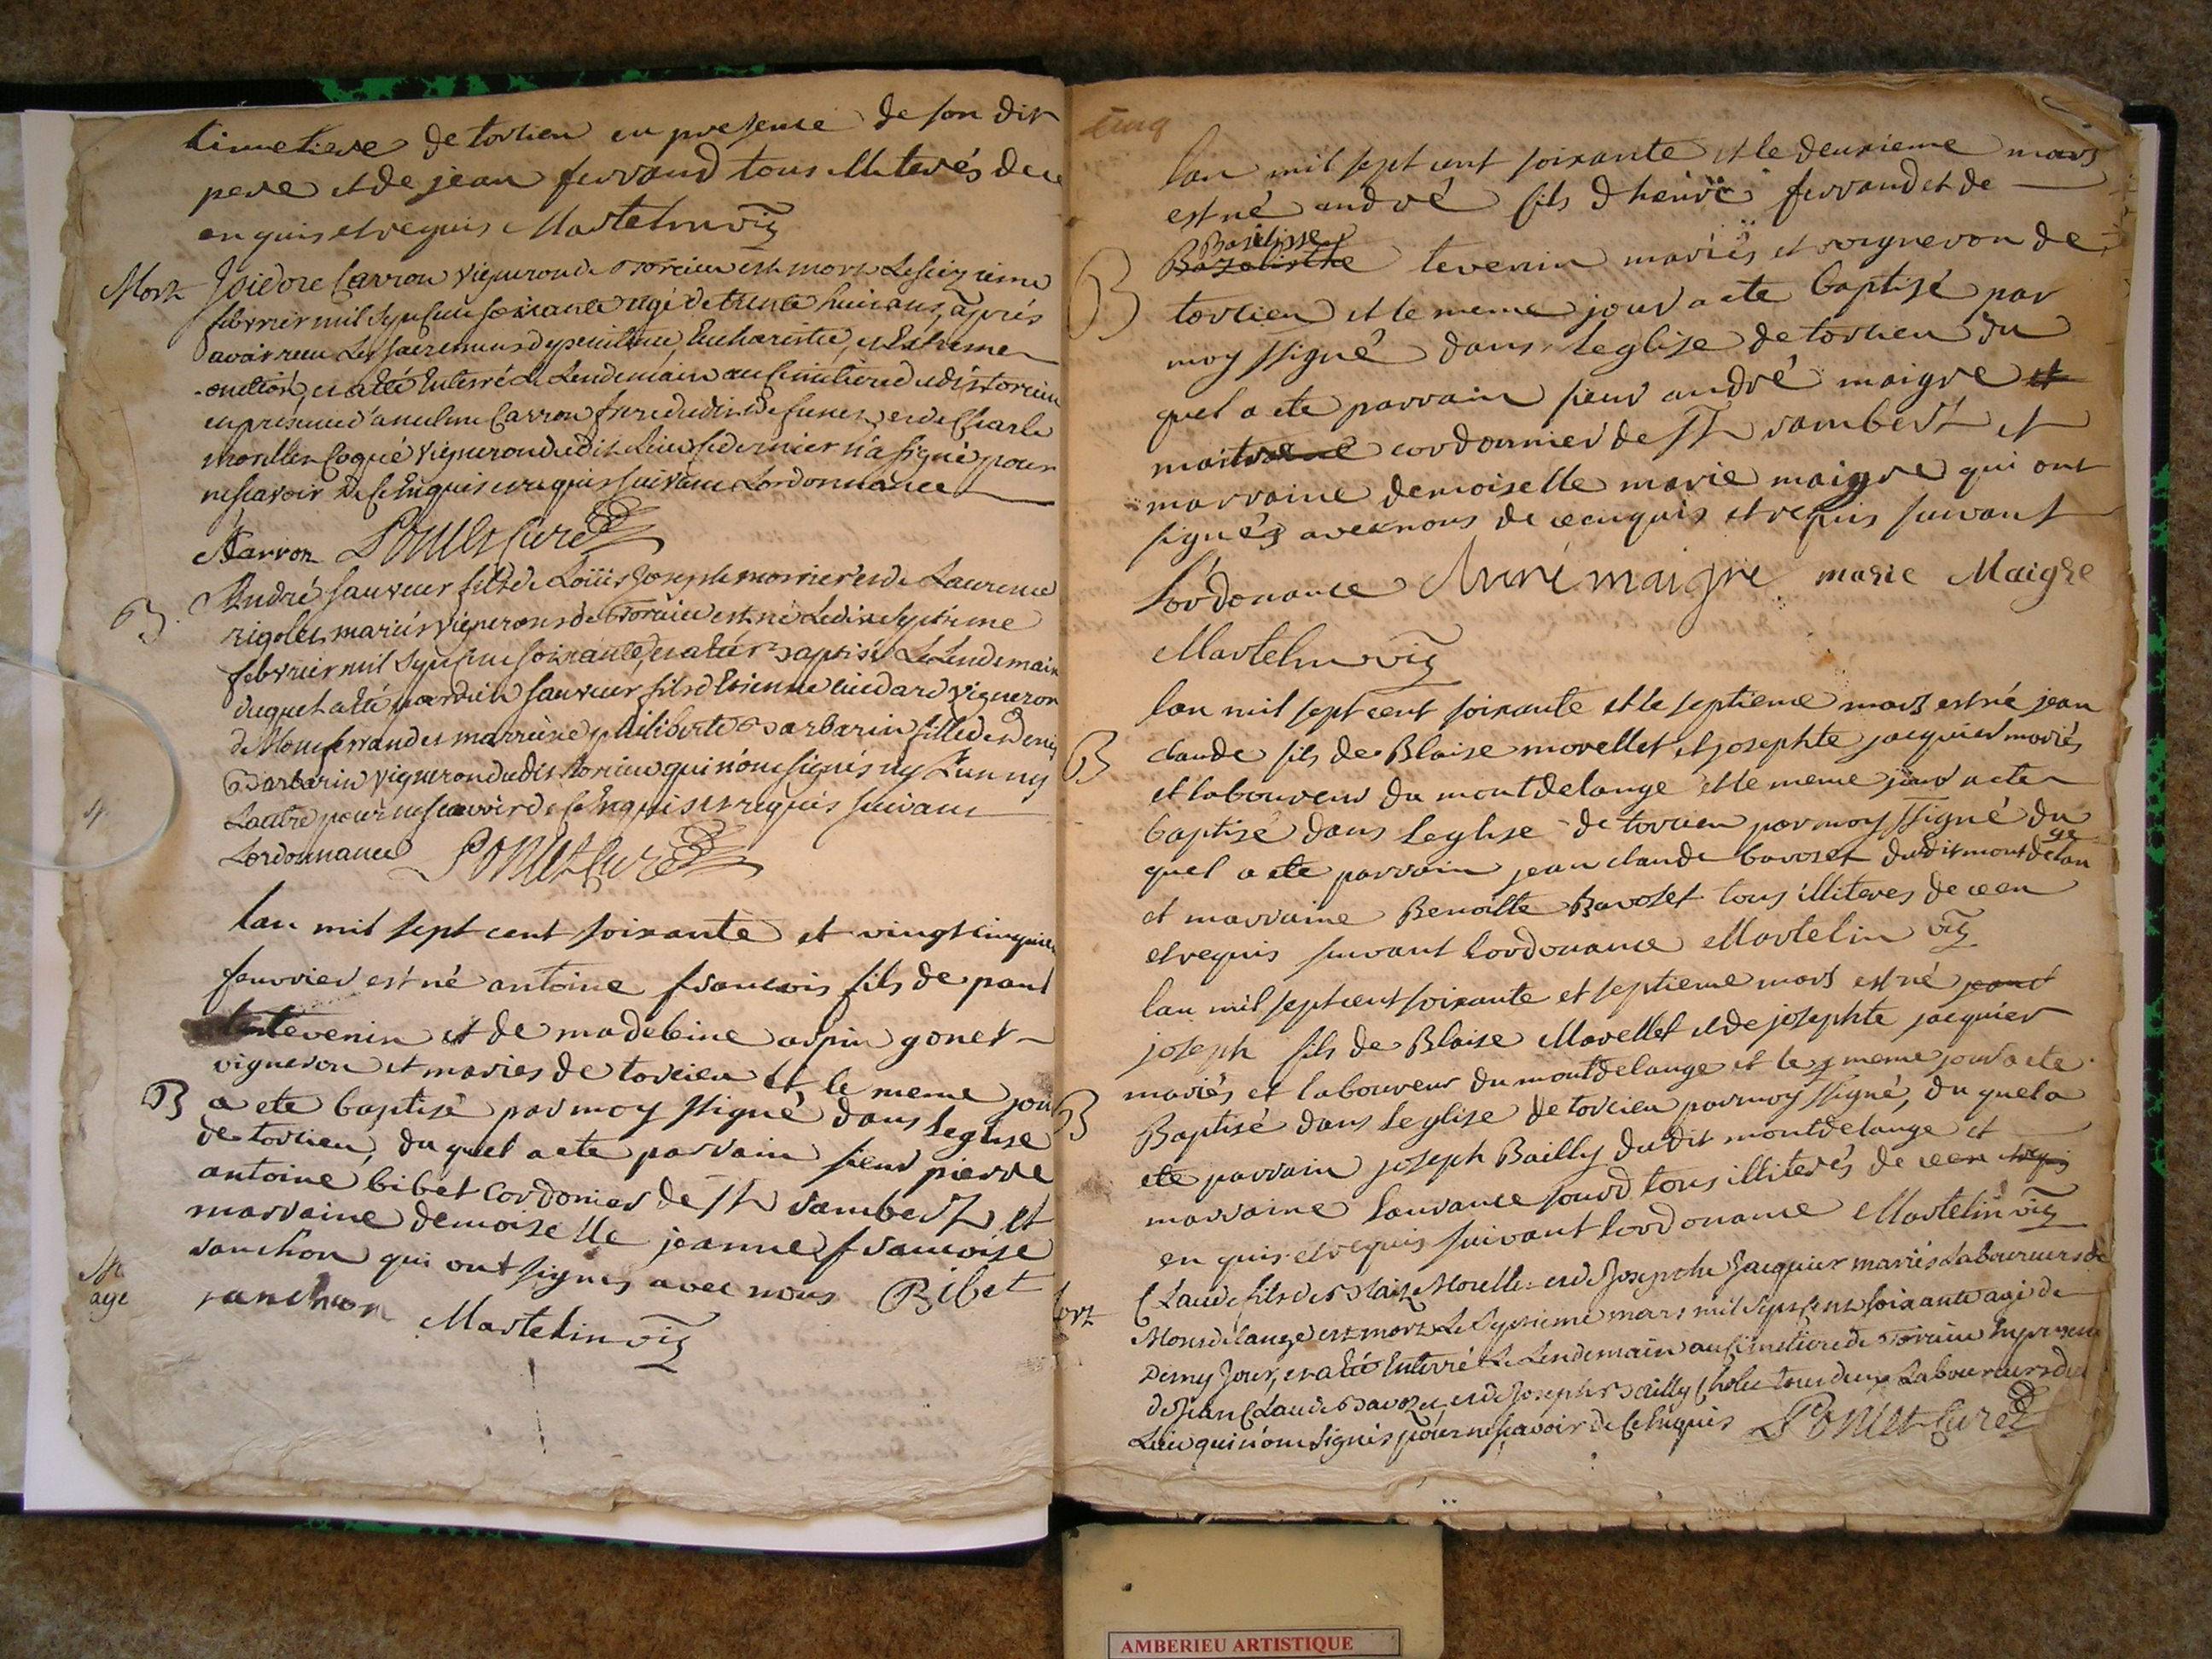 cimetiere de torcien en presence de son dit
pere et de jean ferrand tous illiterés de ce
enquis et requis Martelin vic
Mort
Isidore Carron vigneron de torcieu est mort le seizieme
febvrier mil sept cent soixante agé de trente huit ans, après
avoir receu les sacremens de penitence, Eucharistie, et Extreme
-onction, et a été Enterré le Lendemain au Cimitiere dudit torcieu
en presence d'anselme Carron frere dudit defunct, et de Charle
morellet Coqué vigneron dudit Lieu, Ce dernier n'a signé pour
ne scavoir de ce Enquis et requis suivant Lordonnance
Carron Ponset Curé
B
André sauveur fils de Loüis Joseph morrier et de Laurence
rigolet mariés vignerons de Torcieu est né le dixseptieme
febvrier mil sept cent soixante, et a été Baptisé Le Lendemain
duquel a été parrein sauveur fils d'Etienne vigneron
de Monferrand et marreine philiberte Barbarin fille de denis
Barbarin vigneron dudit torcieu qui n'ont signés ny L'un ny
Lautre pour ne scavoir de ce Enquis et requis suivant
Lordonnance Ponset Curé
lan mil sept cent soixante et vingt cinquiem
fevrier est né antoine francois fils de paul
tevenin et de madeleine arpin gonet
vigneron et maries de torcieu et le meme jou
B
a ete baptisé par moy ssigné dans leglise
de torcieu, du quel a ete parrain sieur pierre
antoine bibet cordonier de st rambert et
marraine demoiselle jeanne francoise
ranchon qui ont signes avec nous Bibet
ranchon Martelin vic
age
Cinq
lan mil sept cent soixante et le deuxieme mars
est né andré fils dhenri ferrand et de
Basilisse
Bazalisthe tevenin mariés et vigneron de
B
torcieu et le meme jour a ete baptisé par
moy ssigné dans leglise de torcieu du
quel a ete parrain sieur andré maigre et
maitre cordonnier de st rambert et
marraine demoiselle marie maigre qui ont
signés avec nous de ce enquis et requis suivant
Lordonance André maigre marie Maigre
Martelin vic
lan mil sept cent soixante et le septieme mars est né jean
B
claude fils de Blaise morellet et josephte jacquier mariés
et laboureur du montdelange et le meme jour a ete
baptisé dans leglise de torcieu par moy ssigné du
quel a ete parrain jean claude bavoset dudit montdelan
ge
et marraine Benoitte Bavoset tous illiteres de ce en
et requis suivant lordonance Martelin vic
lan mil sept cent soixante et septieme mars est né jean
joseph fils de Blaise Morellet et de josephte jacquier
mariés et laboureur du montdelange et le meme jour a ete
B
Baptisé dans leglise de torcieu par moy ssigné, du quel a
ete parrain joseph Bailly dudit montdelange et
marraine laurance jourd tous illiterés de ce en
enquis et requis suivant lordonance Martelin vic
Mort
Claude fils de Blaise Morellet et de Josephte Jacquier mariés Laboureurs de
Montdelange est mort Le septieme mars mil sept cent soixante agé de
Demy Jour, et a été Enterré Le Lendemain au Cimetiere de Torcieu En presence
de Jean Claude Bavozet, et de Joseph Bailly tous deux Laboureurs du
Lieu qui n'ont signés pour ne scavoir de ce Enquis Ponset Curé
AMBERIEU ARTISTIQUE